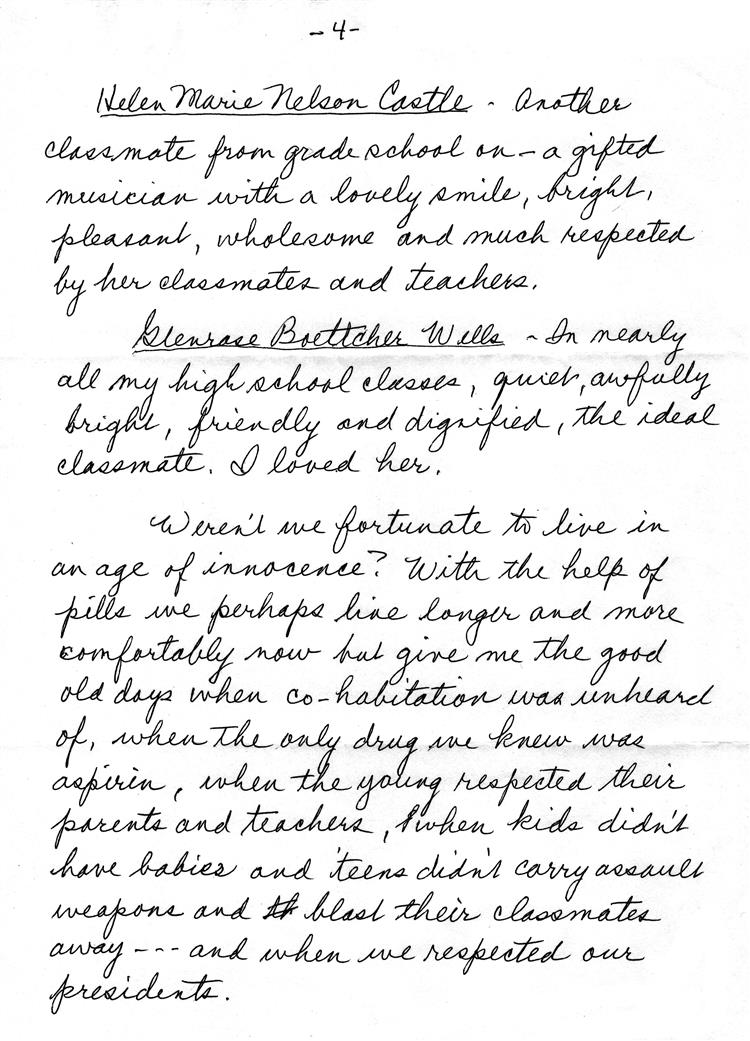 -4-
Helen Marie Nelson Castle - Another
classmate from grade school on - a gifted
musician with a lovely smile, bright,
pleasant, wholesome and much respected
by her classmates and teachers.
Glenrose Boettcher Wills - In nearly
all my high school classes, quiet, awfully
bright, friendly and dignified, the ideal
classmate. I loved her.
Weren't we fortunate to live in
an age of innocence? With the help of
pills we perhaps live longer and more
comfortably now but give me the good
old days when co-habitation was unheard
of, when the only drug we knew was
aspirin, when the young respected their
parents and teachers, when kids didn't
have babies and 'teens didn't carry assault
weapons and blast their classmates
away --- and when we respected our
presidents.